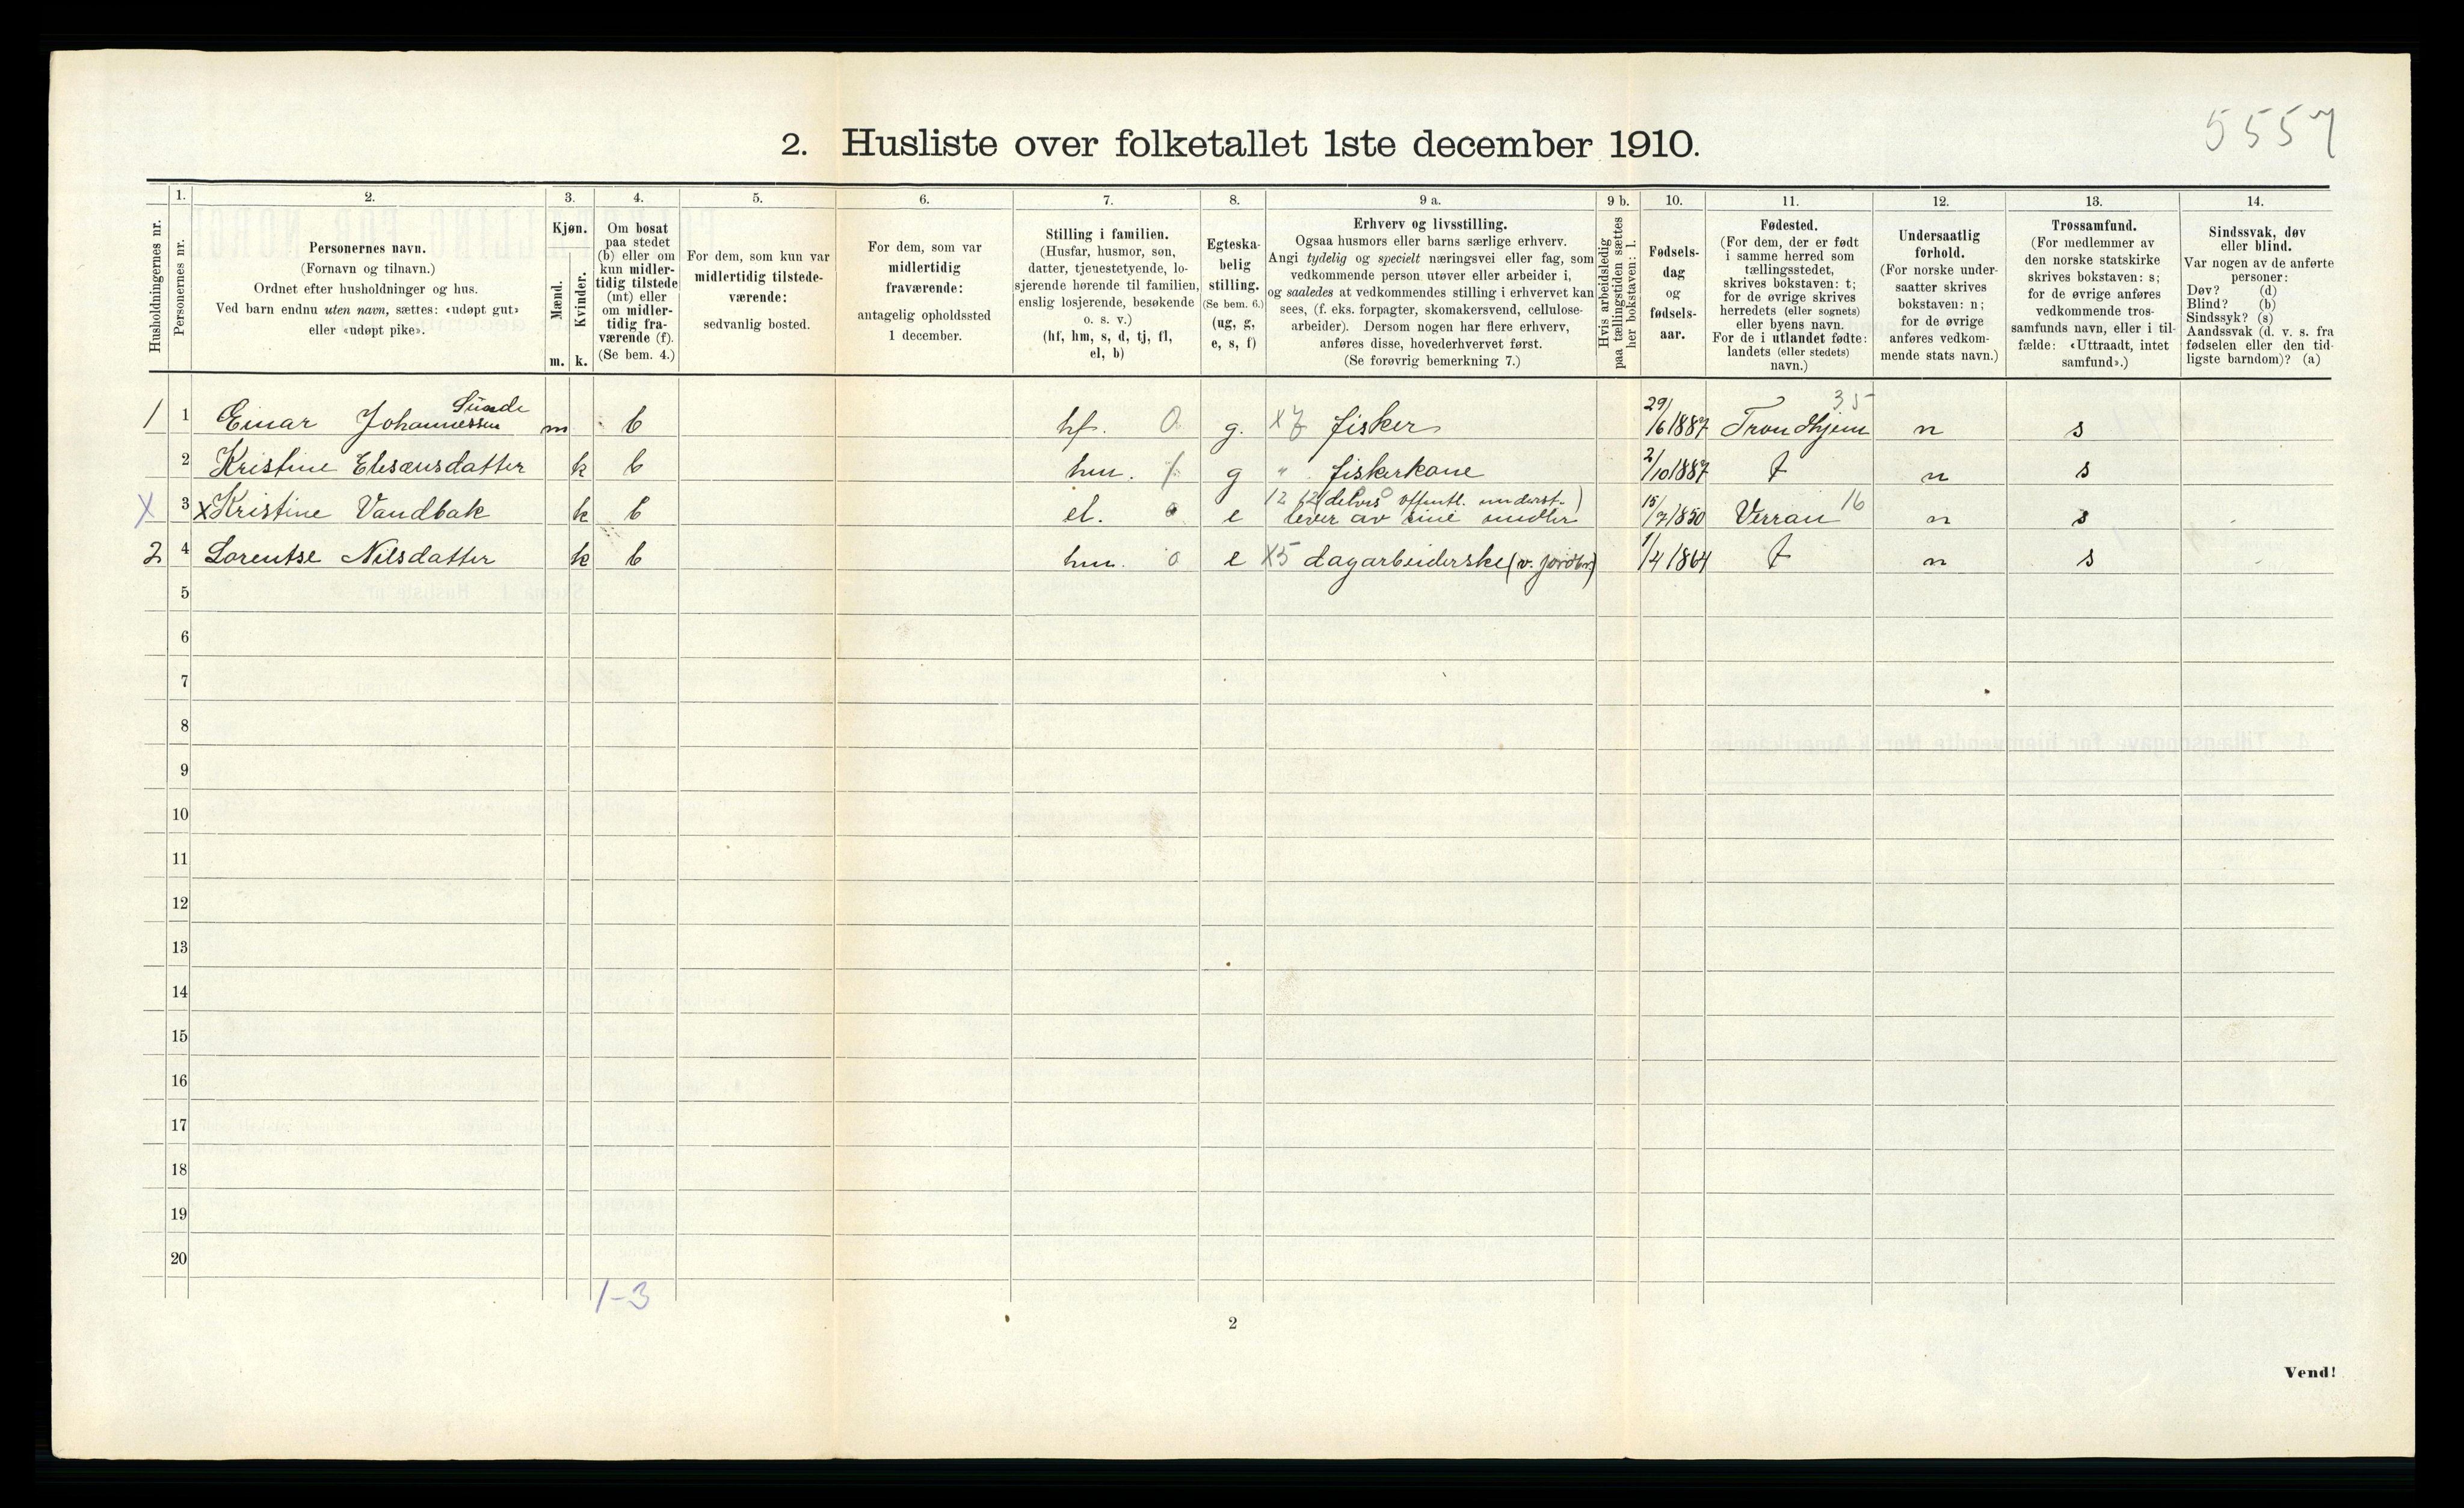 5557
2. Husliste over folketallet 1ste december 1910.
Husholdningernes nr.
1.
Personernes nr.
2.
Personernes navn.
(Fornavn og tilnavn.)
Ordnet efter husholdninger og hus.
Ved barn endnu uten navn, sættes: «udøpt gut»
eller «udøpt pike».
3.
Kjøn.
Mænd.
m.
Kvinder.
k.
4.
Om bosat
paa stedet
(b) eller om
kun midler-
tidig tilstede
(mt) eller
om midler-
tidig fra-
værende (f).
(Se bem. 4.)
5.
For dem, som kun var
midlertidig tilstede-
værende:
sedvanlig bosted.
6.
For dem, som var
midlertidig
fraværende:
antagelig opholdssted
1 december.
7.
Stilling i familien.
(Husfar, husmor, søn,
datter, tjenestetyende, lo-
sjerende hørende til familien,
enslig losjerende, besøkende
o. s. v.)
(hf, hm, s, d, tj, fl,
el, b)
8.
Egteska-
belig
stilling.
(Se bem. 6.)
(ug, g,
e, s, f)
9 a.
Erhverv og livsstilling.
Ogsaa husmors eller barns særlige erhverv.
Angi tydelig og specielt næringsvei eller fag, som
vedkommende person utøver eller arbeider i,
og saaledes at vedkommendes stilling i erhvervet kan
sees, (f. eks. forpagter, skomakersvend, cellulose-
arbeider). Dersom nogen har flere erhverv,
anføres disse, hovederhvervet først.
(Se forøvrig bemerkning 7.)
9 b.
Hvis arbeidsledig
paa tællingstiden sættes
her bokstaven: l.
10.
Fødsels-
dag
og
fødsels-
aar.
11.
Fødested.
(For dem, der er født
i samme herred som
tællingsstedet,
skrives bokstaven: t;
for de øvrige skrives
herredets (eller sognets)
eller byens navn.
For de i utlandet fødte:
landets (eller stedets)
navn.)
12.
Undersaatlig
forhold.
(For norske under-
saatter skrives
bokstaven: n;
for de øvrige
anføres vedkom-
mende stats navn.)
13.
Trossamfund.
(For medlemmer av
den norske statskirke
skrives bokstaven: s;
for de øvrige anføres
vedkommende tros-
samfunds navn, eller i til-
fælde: «Uttraadt, intet
samfund».)
14.
Sindssvak, døv
eller blind.
Var nogen av de anførte
personer:
Døv? (d)
Blind? (b)
Sindssyk? (s)
Aandssvak (d. v. s. fra
fødselen eller den tid-
ligste barndom)? (a)
1 1 Einar Johannessen Sunde m b hf. 0 g. X7 fisker 29/6 1887 Trondhjem 35 n s
2 Kristine Elesæusdatter k b hm. g " fiskerkone 2/10 1887 t n s
X 3 x Kristine Vandbak k b el. 0 e 12 12 (delvis offentl. underst.)
lever av sine midler 15/7 1850 Verran 16 n s
2 4 Lorentse Nilsdatter k b hm. 0 e X5 dagarbeiderske (v. jordbr.) 1/4 1864 t n s
5
6
7
8
9
10
11
12
13
14
15
16
17
18
19
20
1-3
2
Vend!